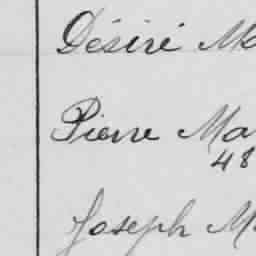 Désiré Ma
Pierre Ma
48
Joseph M